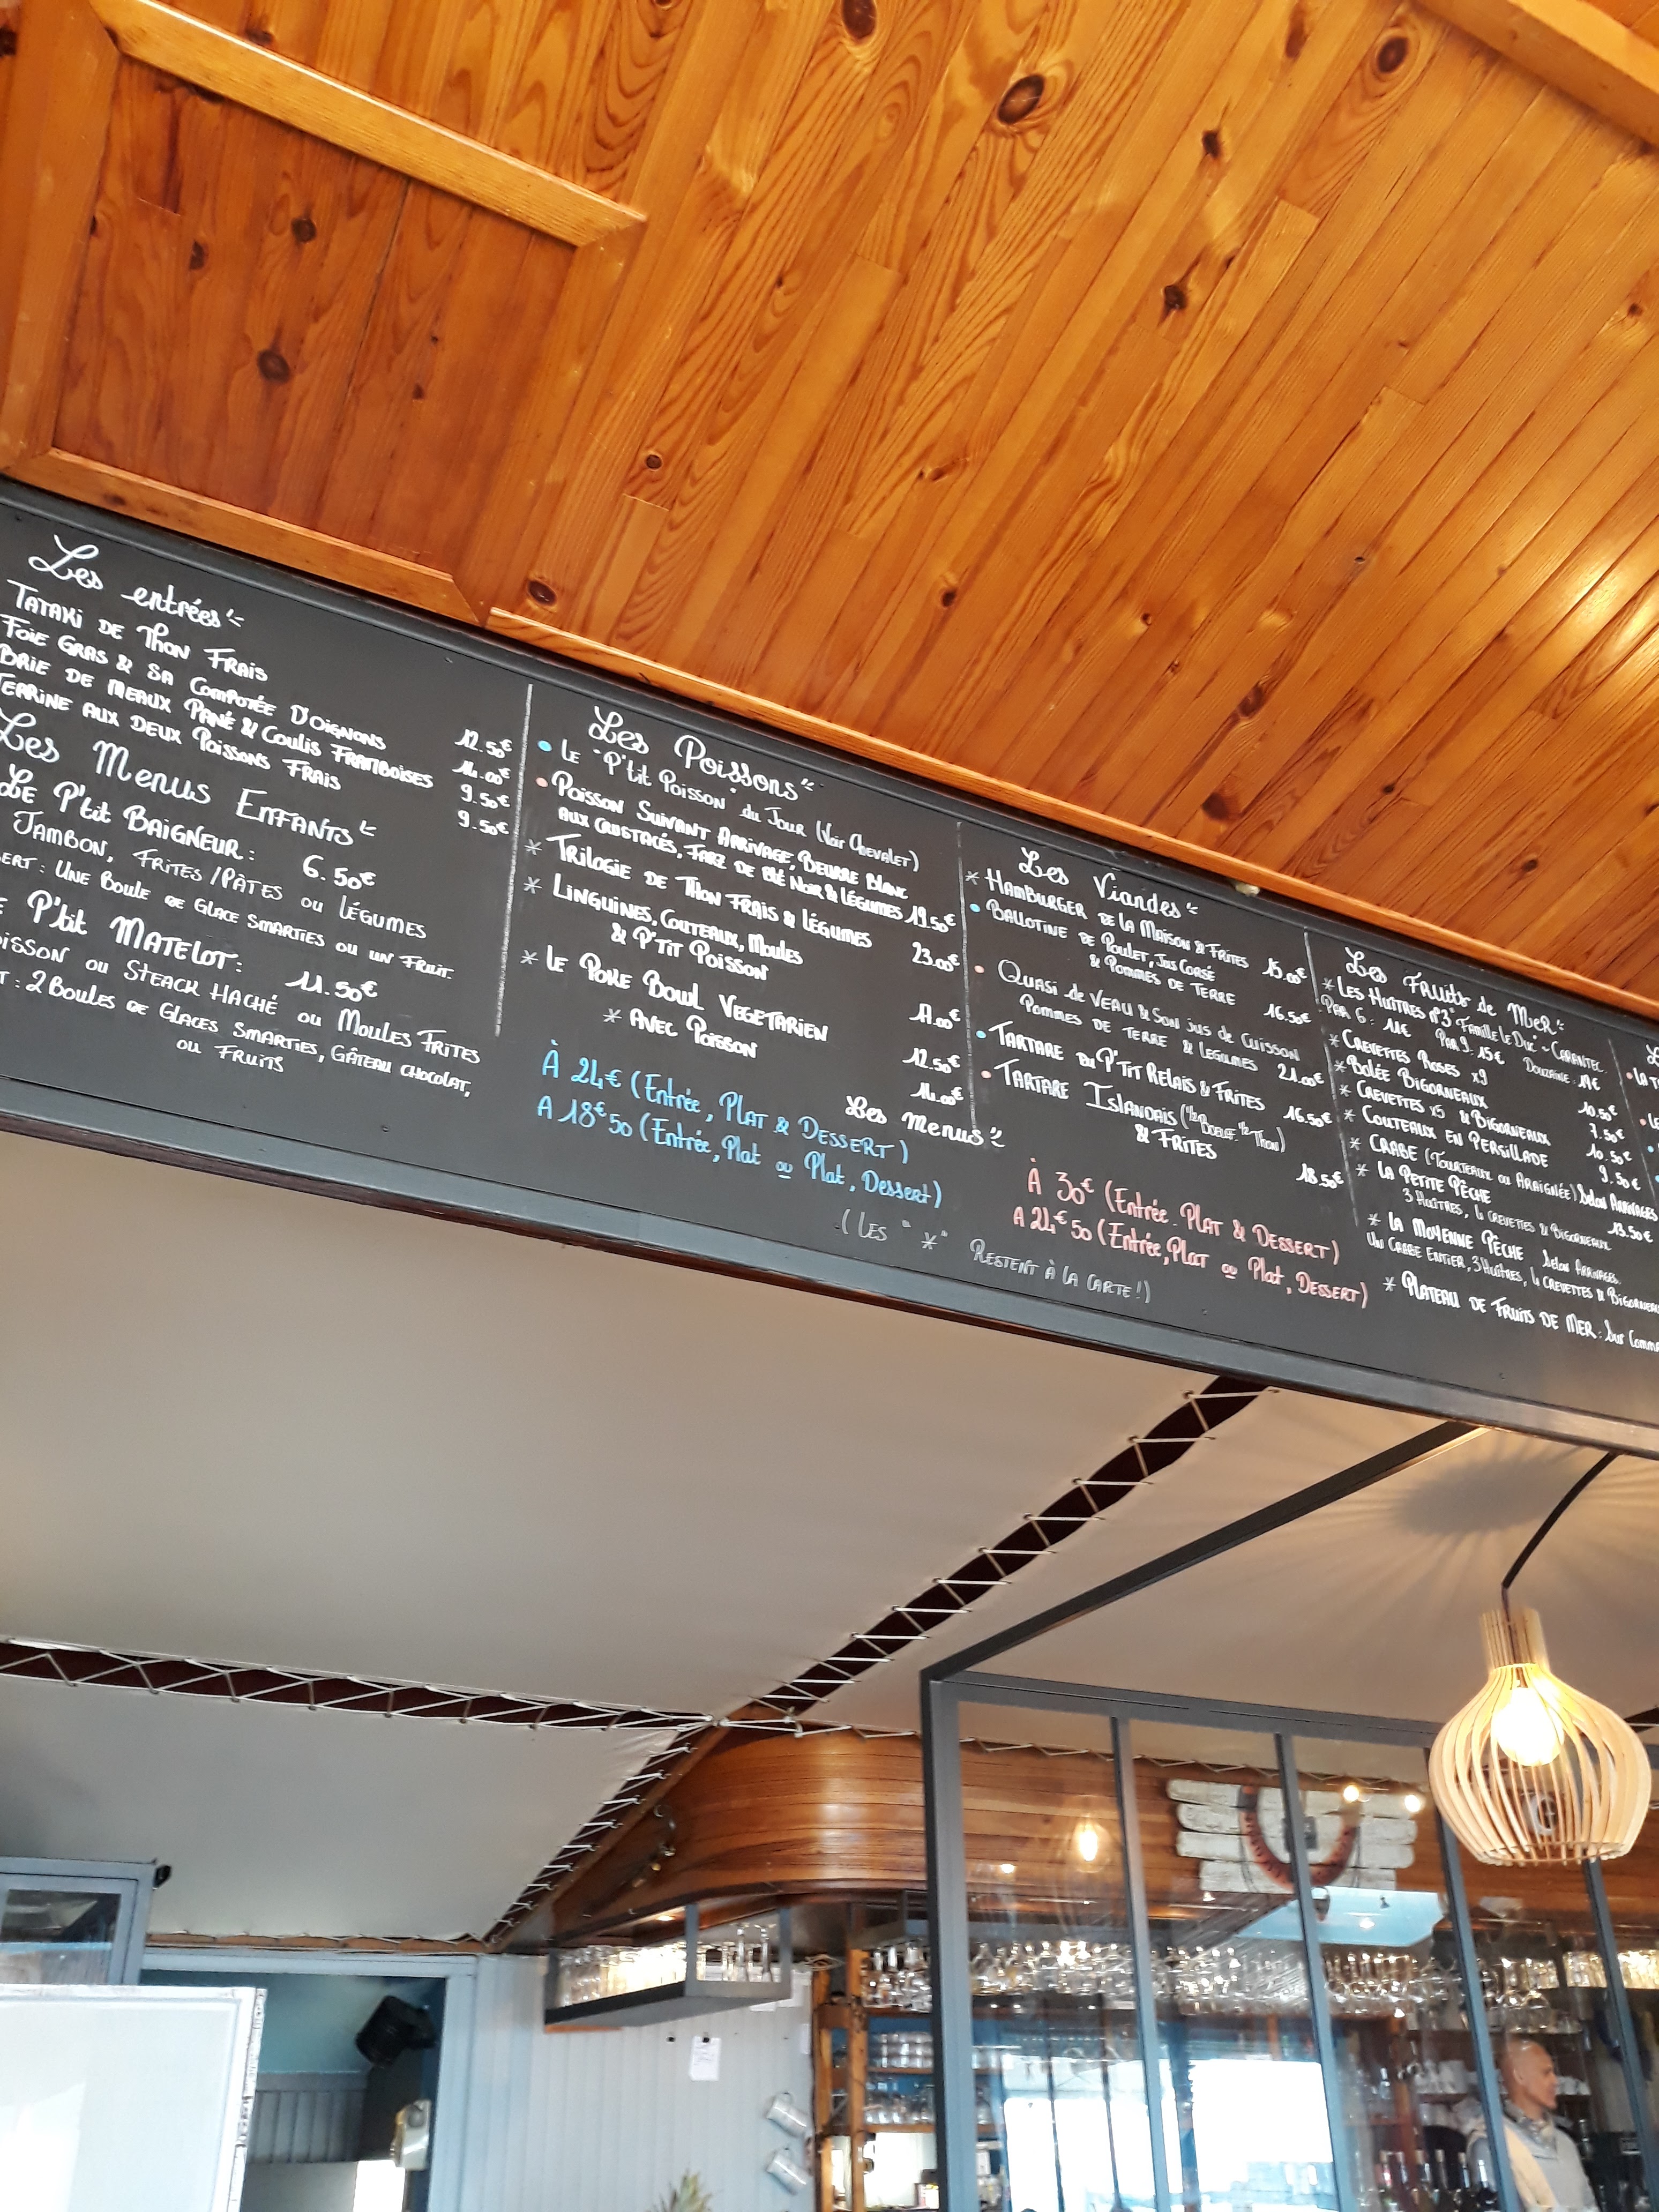 Les entrées
TATAKI DE THON FRAIS 12.50€
FOIE GRAS & SA COMPOTÉE D'OIGNONS 14.00€
BRIE DE MEAUX PANÉ & COULIS FRAMBOISES 9.50€
TERRINE AUX DEUX POISSONS FRAIS 9.50€
Les Menus ENFANTS
LE P'tit BAIGNEUR: 6.50€
JAMBON, FRITES/PÂTES OU LÉGUMES
ERT: UNE BOULE DE GLACE SMARTIES OU UN FRUIT.
E P'tit MATELOT: 11.50€
OISSON OU STEACK HACHÉ OU MOULES FRITES
T: 2 BOULES DE GLACES SMARTIES, GÂTEAU CHOCOLAT,
OU FRUITS
Les Poissons
• LE "P'tit POISSON" du JOUR (Voir CHEVALET)
• POISSON SUIVANT ARRIVAGE, BEURRE BLANC
AUX CRUSTACÉS, FARZ DE BLÉ NOIR & LÉGUMES 19.50€
* TRILOGIE DE THON FRAIS & LÉGUMES 23.00€
* LINGUINES, COUTEAUX, MOULES
& P'TIT POISSON 17.00€
* LE POKE BOWL VEGETARIEN 12.50€
* AVEC POISSON 14.00€
Les Viandes
* HAMBURGER DE LA MAISON & FRITES 15.00€
• BALLOTINE DE POULET, JUS CORSÉ
& POMMES DE TERRE 16.50€
• QUASI de VEAU & SON jus de CUISSON
POMMES DE TERRE & LEGUMES 21.00€
• TARTARE DU P'TIT RELAIS & FRITES 16.50€
• TARTARE ISLANDAIS (1/2 BOEUF. 1/2 THON)
& FRITES 18.50€
Les Menus
À 24€ (Entrée, PLAT & DESSERT)
A 18€50 (Entrée, Plat ou Plat, Dessert)
À 30€ (Entrée. PLAT & DESSERT)
A 24€50 (Entrée, PLAT ou Plat, DESSERT)
(LES "*" RESTENT À LA CARTE!)
Les FRuits de MER
* LES HUÎTRES n°3 "FAMILLE LE DUC" ~ CARANTEC
PAR 6: 11€ PAR 9: 15€ DOUZAINE: 19€
* CREVETTES ROSES x9 10.50€
* BOLÉE BIGORNEAUX 7.50€
* CREVETTES x5 & BIGORNEAUX 10.50€
* COUTEAUX EN PERSILLADE 9.50€
* CRABE (TOURTEAUX OU ARAIGNÉE) Selon ARRIVAGES
* LA PETITE PÊCHE 13.50€
3 HUÎTRES, 4 CREVETTES & BIGORNEAUX
* LA MOYENNE PÊCHE Selon ARRIVAGES
UN CRABE ENTIER, 3 HUÎTRES, 4 CREVETTES & BIGORNEAU
* PLATEAU DE FRUITS DE MER: Sur Comm